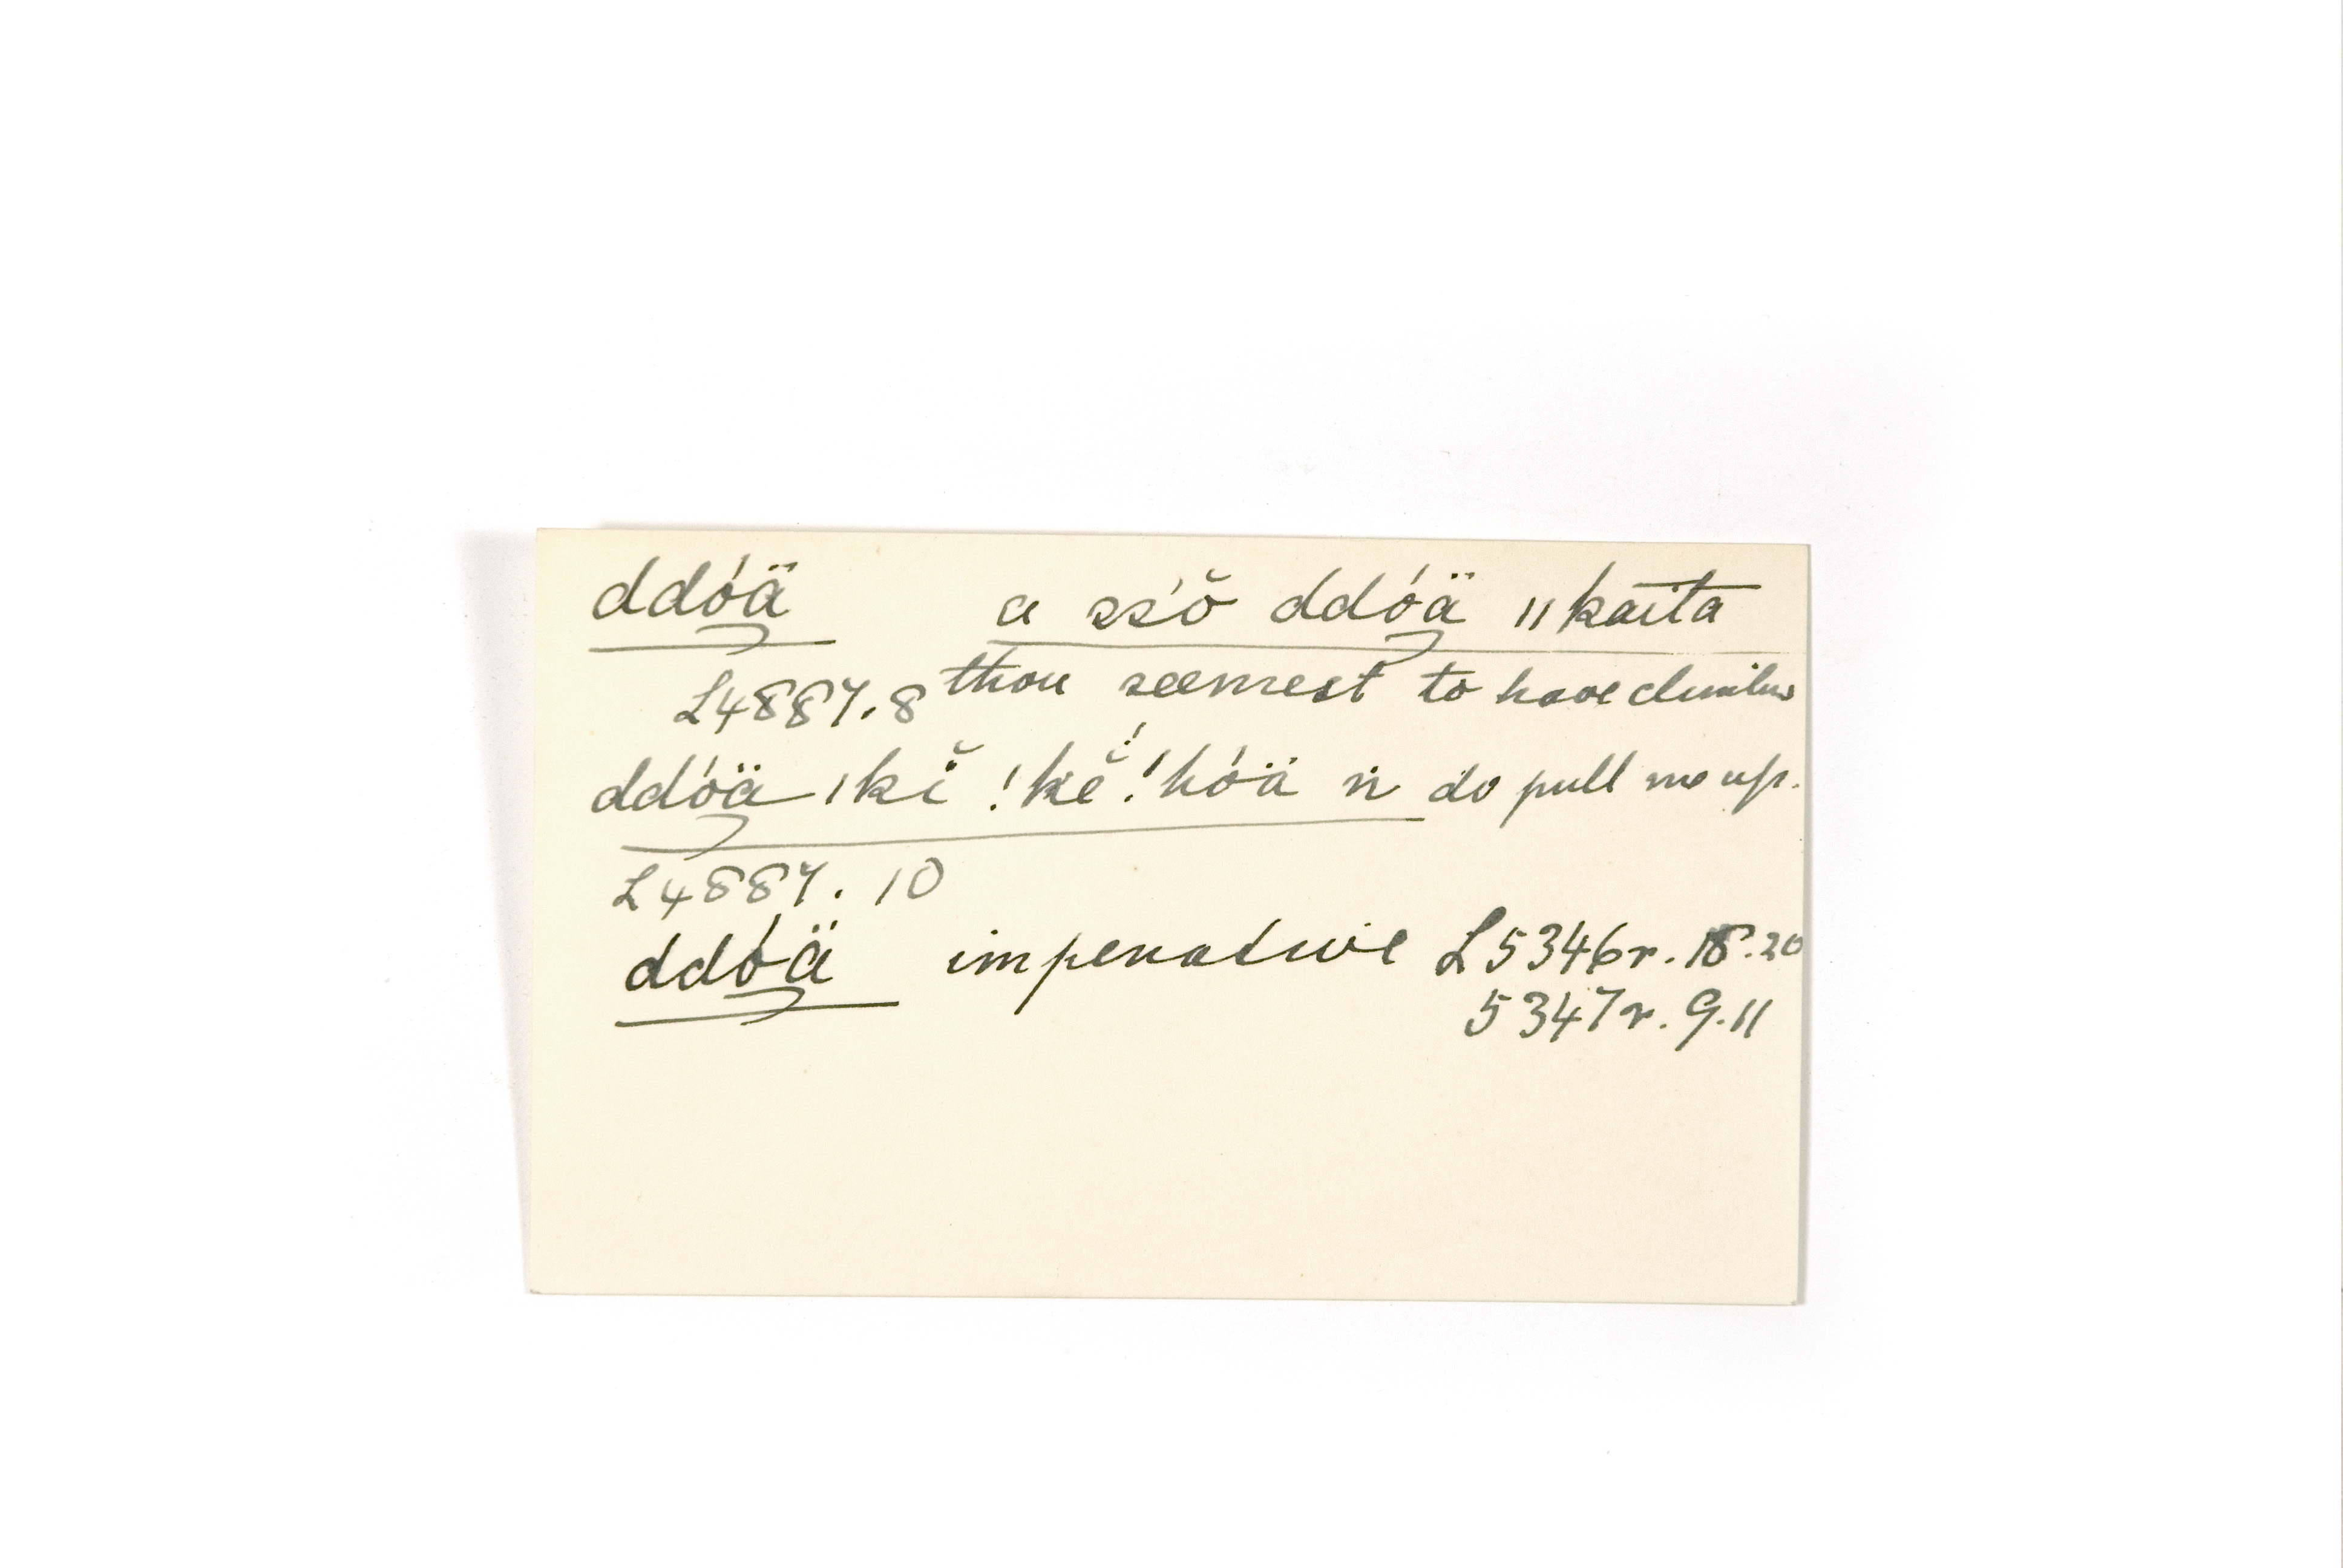 ddóä a ss'ŏ ddóä ǁkaïta
L4887.8 thou seemest to have climbed
ddóä ǀkĭ !kĕ !hóä ṅ do pull me up.
L4887.10
ddóä imperative L5346r.18.20
5347r.9.11